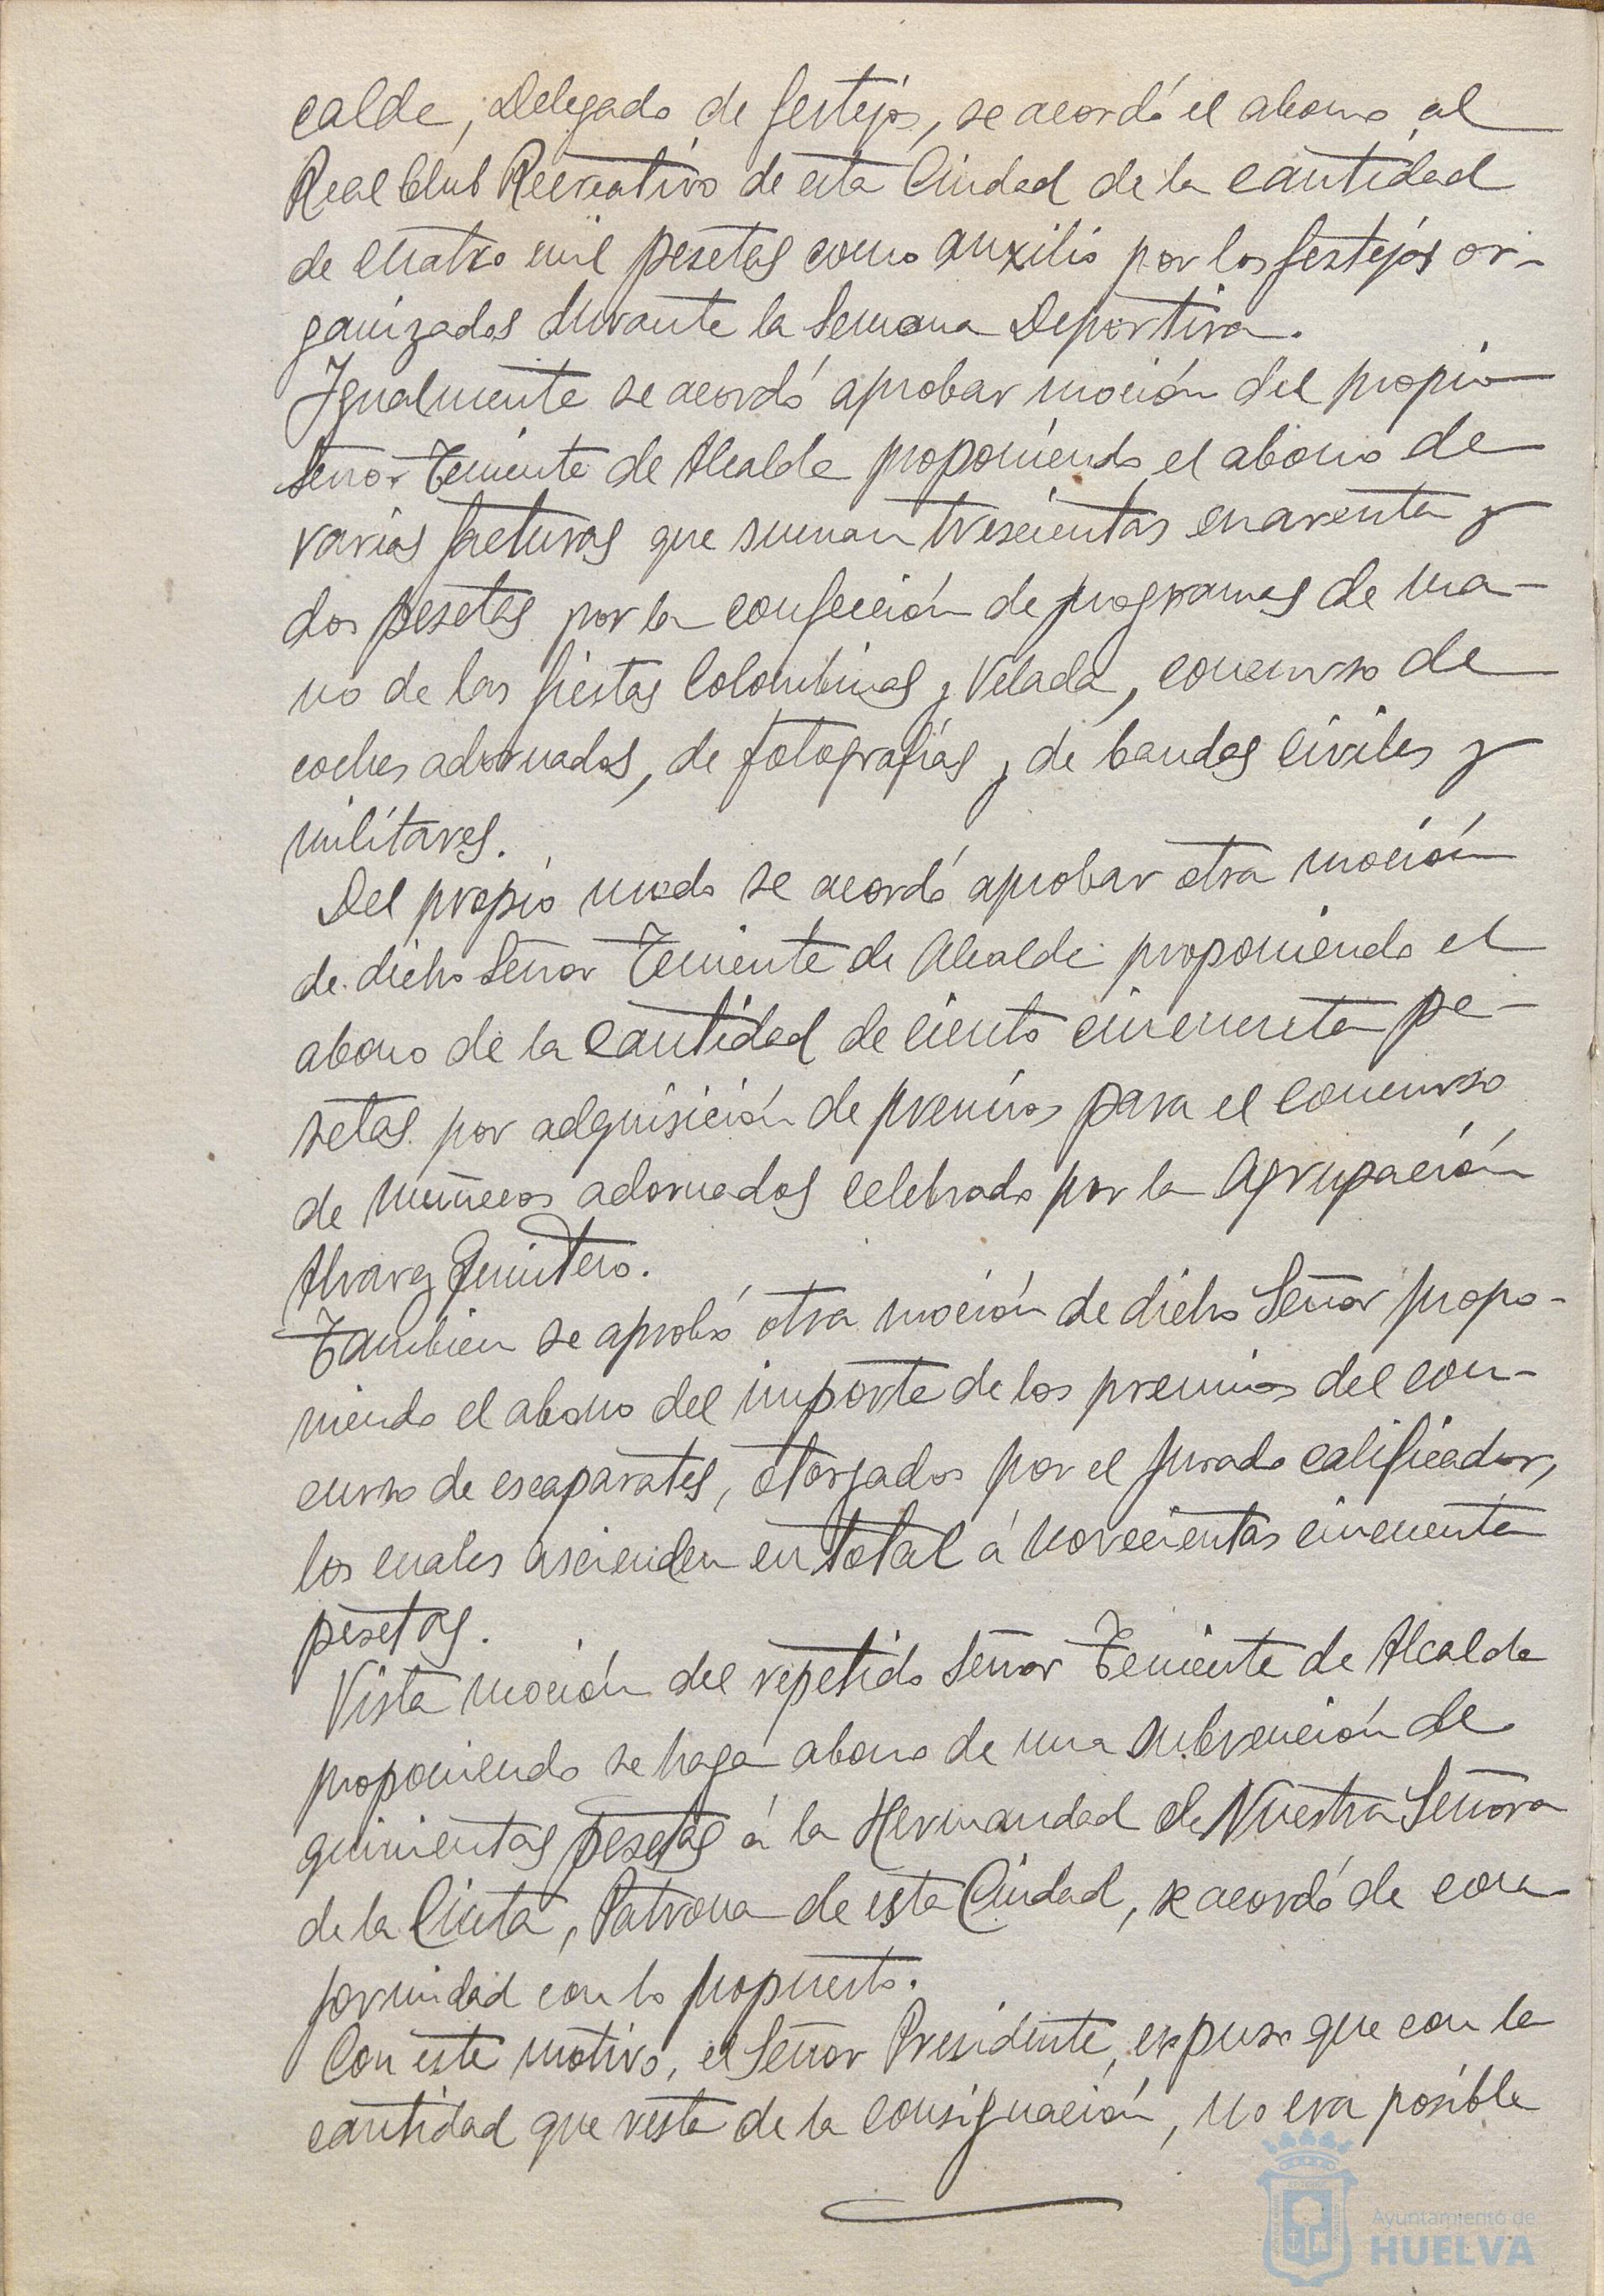 calde, Delegado de festejos, se acordó el abono al
Real Club Recreativo de esta Ciudad de la cantidad
de cuatro mil pesetas como auxilio por los festejos or-
ganizados durante la Semana Deportiva.
Igualmente se acordó aprobar moción del propio
Señor Teniente de Alcalde proponiendo el abono de
varias facturas que suman trescientas cuarenta y
dos pesetas por la confección de programas de ma-
no de las fiestas Colombinas y Velada, concurso de
coches adornados, de fotografías y de bandas civiles y
militares.
Del propio modo se acordó aprobar otra moción
de dicho Señor Teniente de Alcalde proponiendo el
abono de la cantidad de ciento cincuenta pe-
setas por adquisición de premios para el concurso
de muñecos adornados celebrado por la Agrupación
Alvarez Quintero.
Tambien se aprobó otra moción de dicho Señor propo-
niendo el abono del importe de los premios del con-
curso de escaparates, otorgados por el jurado calificador,
los cuales ascienden en total á novecientas cincuenta
pesetas.
Vista moción del repetido Señor Teniente de Alcalde
proponiendo se haga abono de una subvención de
quinientas pesetas á la Hermandad de Nuestra Señora
de la Cinta, Patrona de esta Ciudad, se acordó de con-
formidad con lo propuesto.
Con este motivo, el Señor Presidente, expuso que con la
cantidad que resta de la consignación, no era posible
Ayuntamiento de
HUELVA